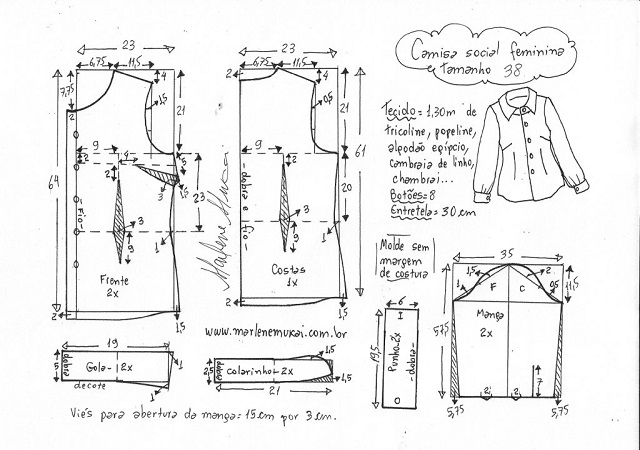 Camisa social feminina
e tamanho 38
Tecido = 1,30m de
tricoline, popeline,
algodão egípcio,
cambraia de linho,
chambrai...
Botões = 8
Entretela = 30 cm
Molde sem
margem
de costura
23
6,75
11,5
4
7,75
2
1,5
21
9
2
4
2
5
3
1,5
23
64
-Fio-
3
9
1
Frente
2x
2
1,5
23
2
6,75
11,5
4
0,5
21
61
9
2
20
-dobra e fio-
3
9
1
Costas
1x
2
1,5
Marlene Mukai
www.marlenemukai.com.br
19
5
dobra
Gola - 2x
decote
1
1
2,5
dobra
colarinho - 2x
1,5
1,5
21
6
19,5
Punho - 2x
-dobra-
35
1,5
2
1
F
C
0,5
11,5
Manga
2x
57,5
7
2
2
5,75
5,75
Viés para abertura da manga = 15 cm por 3 cm.